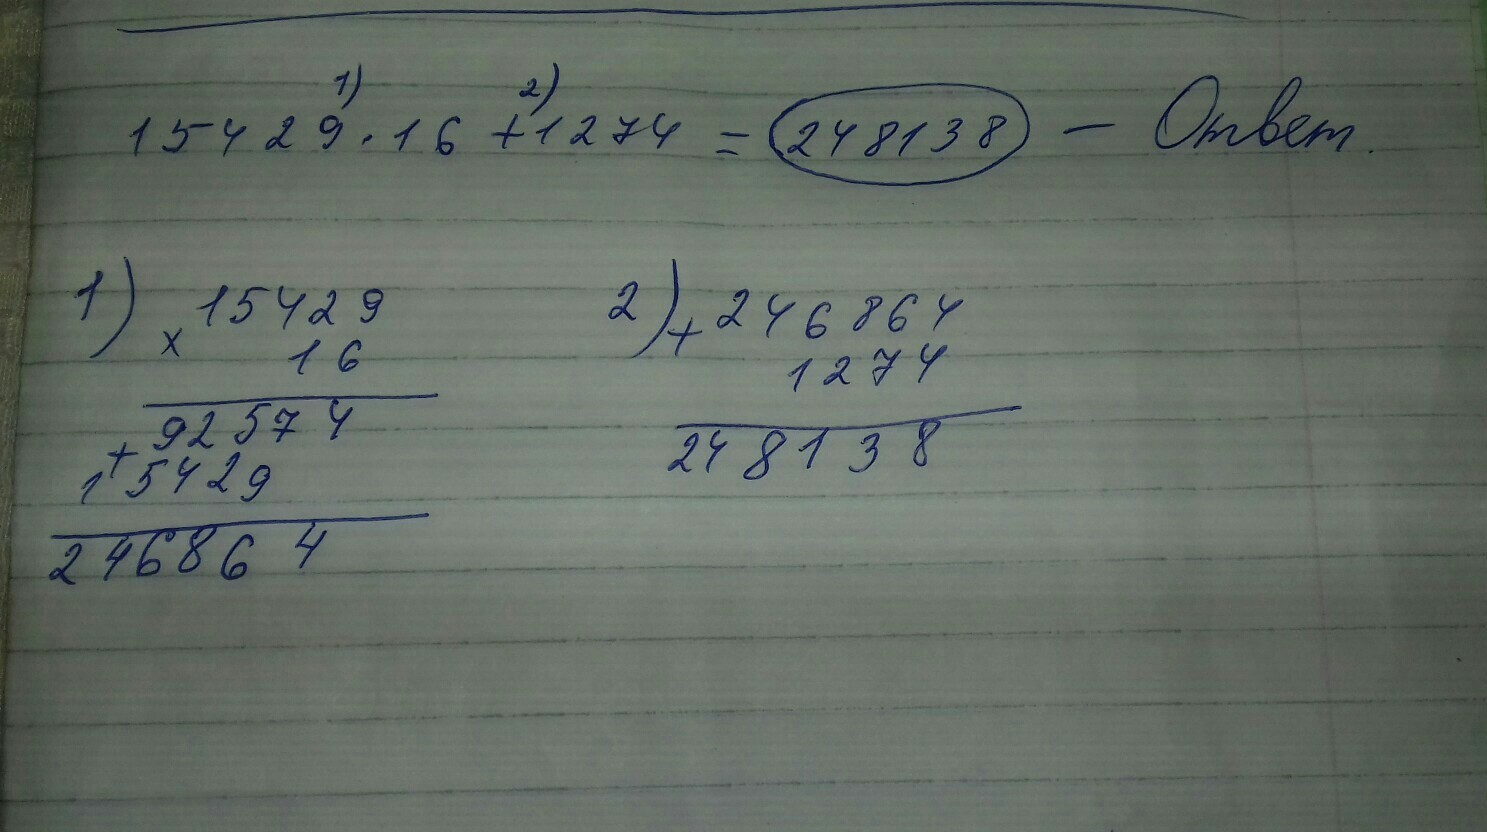 1) 2)
15429·16+1274=248138 — Ответ.
1) 15429
x 16
92574
+
15429
246864
2) +246864
1274
248138